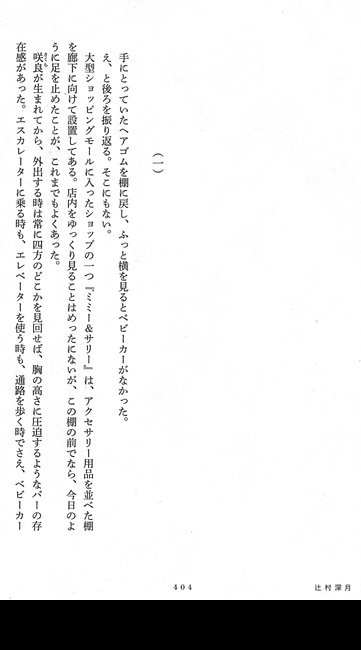 (一)
手にとっていたヘアゴムを棚に戻し、ふっと横を見るとベビーカーがなかった。
え、と後ろを振り返る。そこにもない。
大型ショッピングモールに入ったショップの一つ『ミミー&サリー』は、アクセサリー用品を並べた棚
を廊下に向けて設置してある。店内をゆっくり見ることはめったにないが、この棚の前でなら、今日のよ
うに足を止めたことが、これまでもよくあった。
咲良が生まれてから、外出する時は常に四方のどこかを見回せば、胸の高さに圧迫するようなバーの存
在感があった。エスカレーターに乗る時も、エレベーターを使う時も、通路を歩く時でさえ、ベビーカー
404
辻村深月